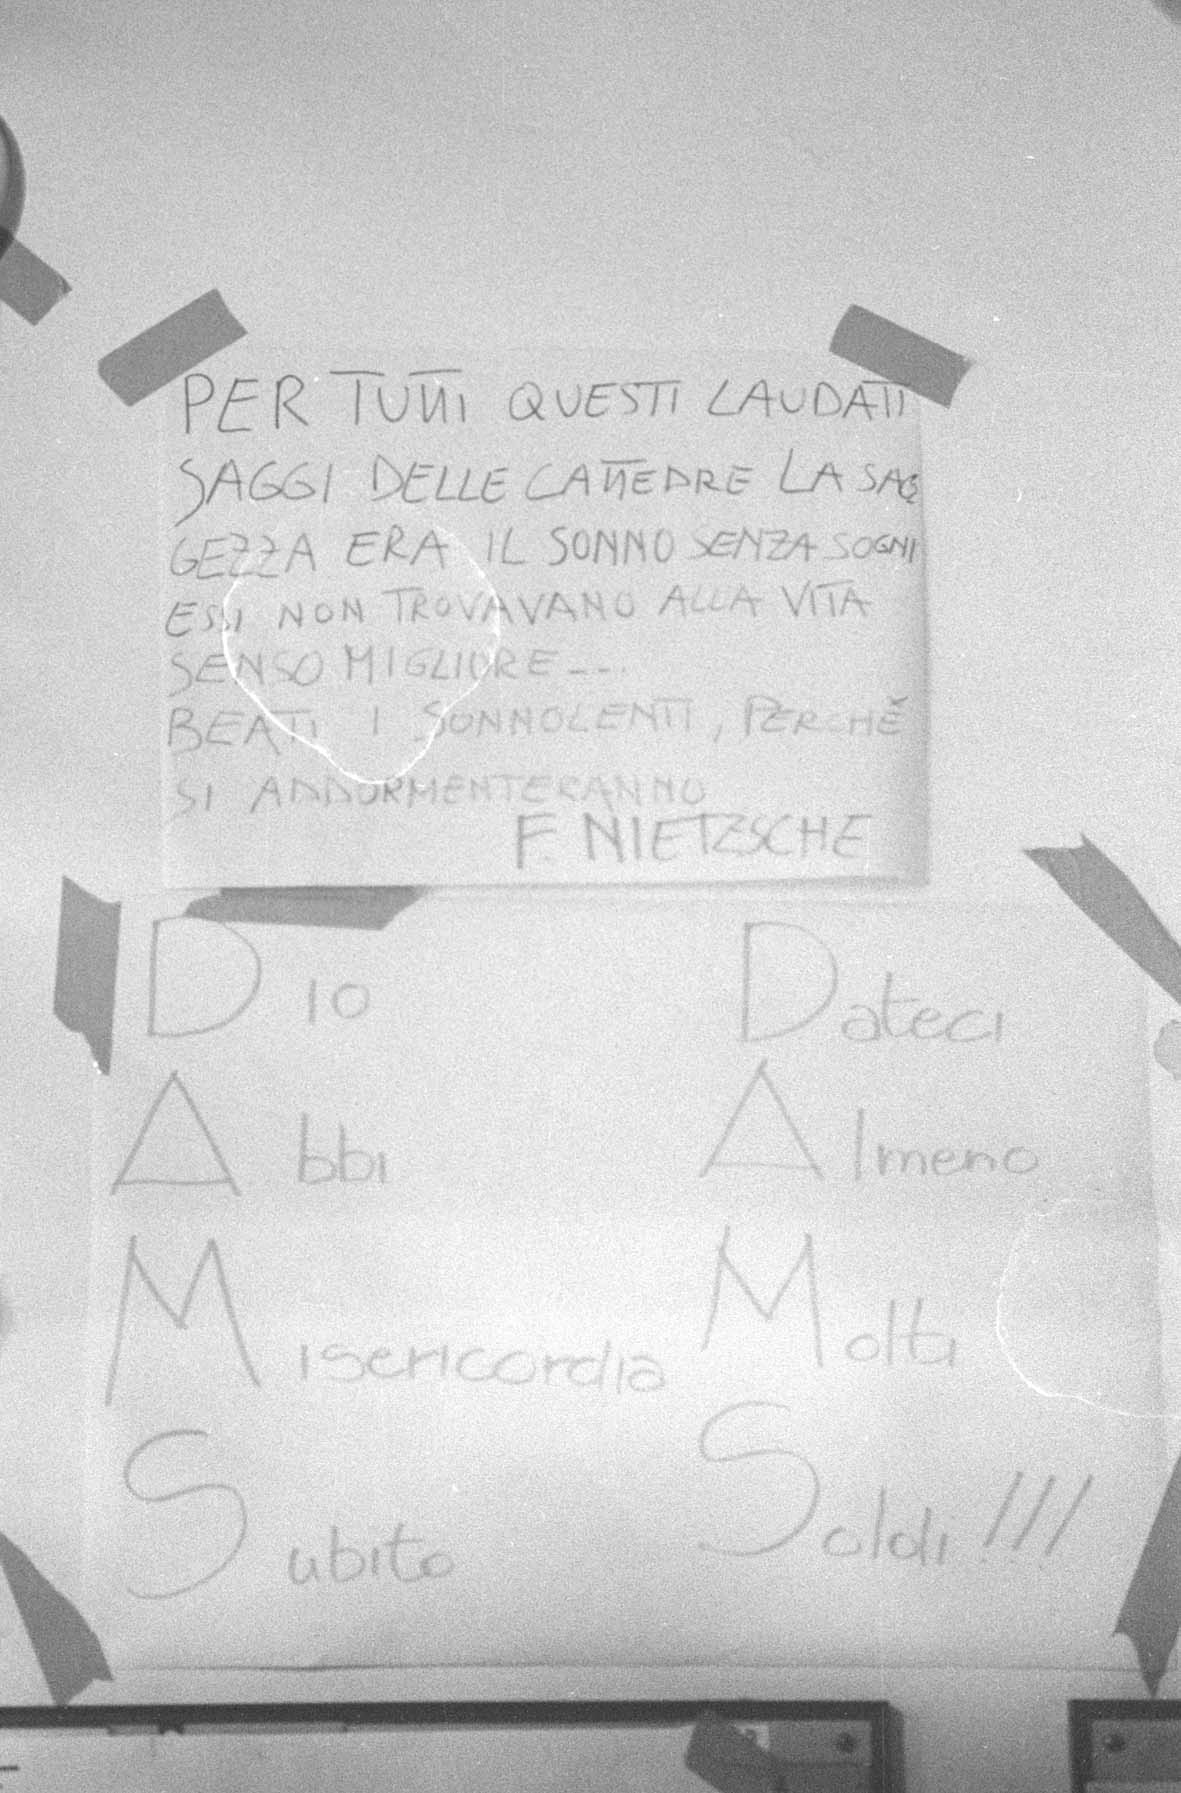 PER TUTTI QUESTI LAUDATI
SAGGI DELLE CATTEDRE LA SAG
GEZZA ERA IL SONNO SENZA SOGNI
ESSI NON TROVAVANO ALLA VITA
SENSO MIGLIORE ---.
BEATI I SONNOLENTI, PERCHÈ
SI ADDORMENTERANNO
F. NIETZSCHE
Dio
Abbi
Misericordia
Subito
Dateci
Almeno
Molti
Soldi!!!